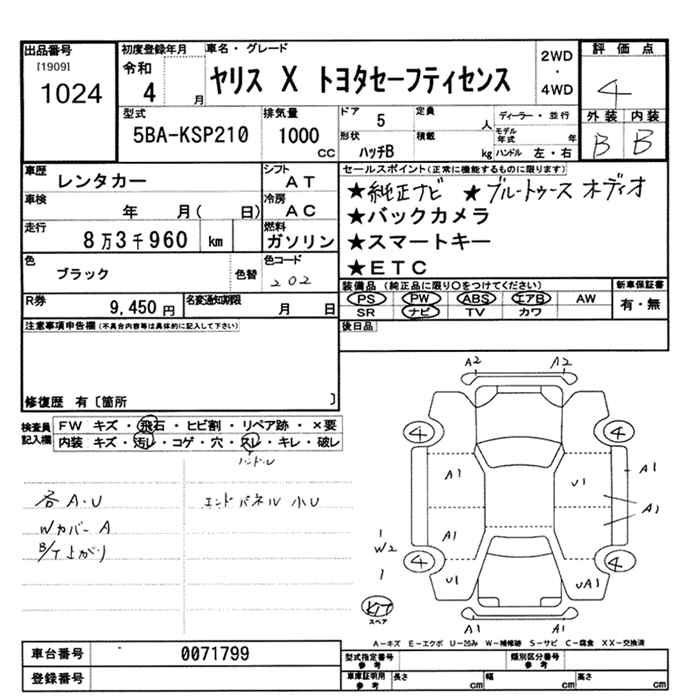 出品番号 初度登録年月 車名・グレード 2WD・4WD 評価点
[1909] 令和
1024 4 月 ヤリス X トヨタセーフティセンス 4
型式 排気量 ドア 定員 ディーラー・並行 外装 内装
5BA-KSP210 1000 cc 5 人 モデル年式 年 B B
形状 積載
ハッチB kg ハンドル 左・右
車歴 レンタカー シフト AT セールスポイント(正常に機能するものに限ります)
車検 年 月( 日) 冷房 AC ★純正ナビ ★ブルートゥース オーディオ
走行 8万3千960 km 燃料 ガソリン ★バックカメラ
★スマートキー
色 ブラック 色替 色コード 202 ★ETC
R券 9,450円 名変通知期限 月 日 装備品(純正品に限り○をつけてください) 新車保証書
PS PW ABS エアB AW 有・無
SR ナビ TV カワ
注意事項申告欄(不具合内容等は具体的に記入して下さい) 後日品
修復歴 有〔箇所 〕
検査員記入欄 FW キズ・飛石・ヒビ割・リペア跡・×要
内装 キズ・汚レ・コゲ・穴・スレ・キレ・破レ
ハンドル
各A・U エンドパネル 小U
Wカバー A
B/T上がり
A2 A2
4 4
A1 U1 A1
A1 A1
1
W2
1
4 4
U1 UA1
KIT
スペア
A1 A1
A-キズ E-エクボ U-凹み W-補修跡 S-サビ C-腐食 XX-交換済
車台番号 0071799 型式指定番号参考 類別区分番号参考
登録番号 車庫証明用参考 長さ cm 幅 cm 高さ cm